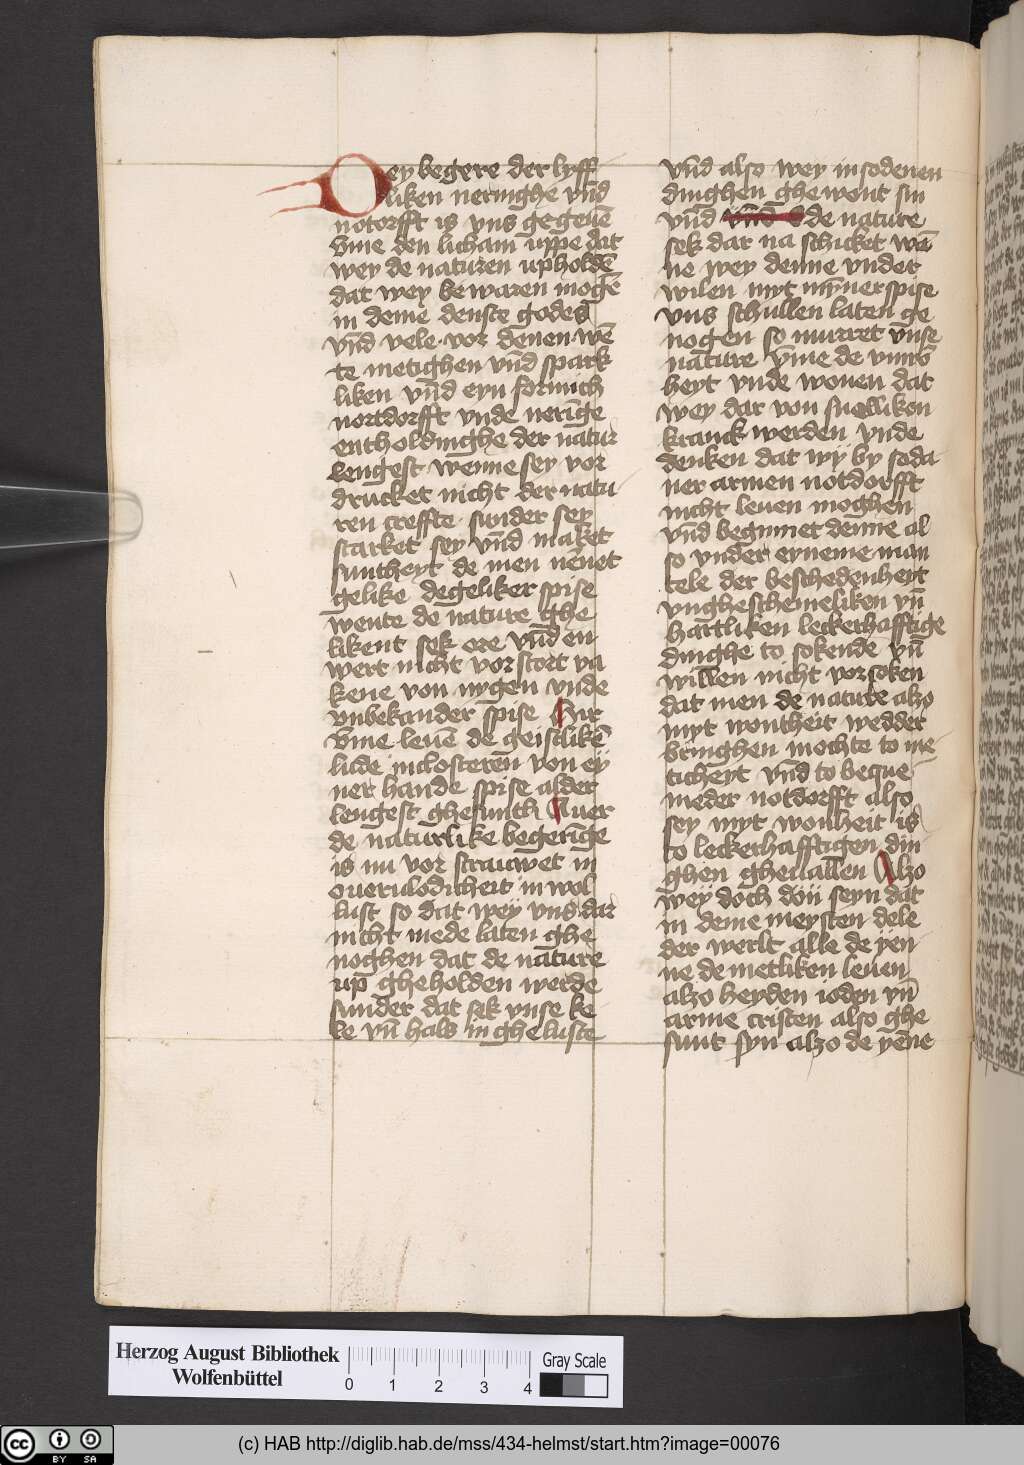 Dey begere der lyff
liken neringhe vn̄d
notorfft is vns gegeuē
vm̄e den licham uppe dat
wey de naturen upholdē
dat wey bewaren mogē
in deme denste godes
vn̄d vele vor denen wē
te metighen vn̄d spark
liken vn̄d eyn formich
nortdorfft vnde nerīge
entholdinghe der natur
lengest wenne sey vor
drucket nicht der natu
ren creffte sunder sey
starket sey vn̄d maket
suntheyt de men nēnet
gelike degeliker spise
wente de nature ghe
likent sek ore vn̄d en
wert nicht vorstort va
kene von nygen vnde
vnbekander spise Hir
vm̄e leuē de geistlikē
lude inclosterēn von eÿ
ner hande spise alder
lengest ghesunth Auer
de naturlike begerīge
is nu vor strauwet in
ouerulodicheit in wol
lust so dat weÿ vns dar
nicht mede laten ghe
noghen dat de nature
up gheholden werde
sunder dat sek vnse ke
le vn̄ hals in gheluste
vn̄d also wey in sodenen
dinghen ghewont sin
vn̄d de nature
sek dar na schicket wē
ne wey denne vnder
wilen myt mȳner spise
vns schullen laten ge
nogen so murret vnse
nature vm̄e de vnwō
heyt vnde wouen dat
wey dar von suelliken
kranck werden vnde
denken dat wÿ by soda
ner armen notdorfft
nicht leuen moghen
vn̄d begīnnet denne al
so vnder eyneme man
tele der beschedenheyt
vnghescheme­liken vn̄
hartliken leckerhafftige
dinghe to sokende vn̄
willen nicht vorsoken
dat men de nature alzo
myt wontheit wedder
bringhen mochte to me
ticheyt vn̄d to beque
meder notdorfft also
sey myt wonheit is
to leckerhafftigen din
ghen gheuallen Alzo
weÿ doch don seyn dat
in deme meysten dele
der werlt alle de yen
ne de metliken leuen
alzo heyden ioden vn̄
arme cristen also ghe
sunt syn alzo de yēne
Herzog August Bibliothek
Wolfenbüttel
0 1 2 3 4
Gray Scale
cc BY SA
(c) HAB http://diglib.hab.de/mss/434-helmst/start.htm?image=00076